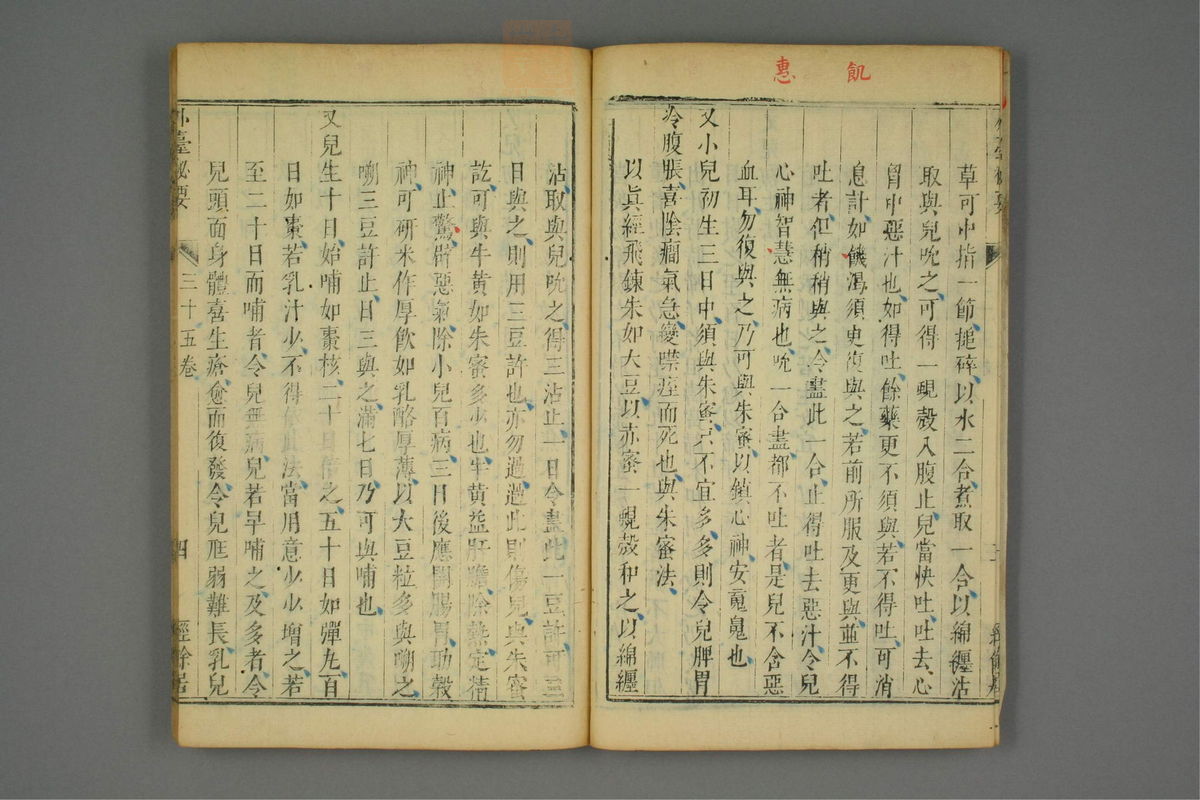 飢
惠
草可中指一節搥碎以水二合煮取一合以綿纏沾
取與兒吮之可得一蜆殼入腹止兒當快吐吐去心
胷中惡汁也如得吐餘藥更不須與若不得吐可消
息計如饑渴須臾復與之若前所服及更與並不得
吐者但稍稍與之令盡此一合止得吐去惡汁令兒
心神智慧無病也吮一合盡都不吐者是兒不含惡
血耳勿復與之乃可與朱蜜以鎮心神安䰟鬼也
又小兒初生三日中須與朱蜜只不宜多多則令兒脾胃
冷腹脹喜陰癎氣急變噤痙而死也與朱蜜法
以眞經飛鍊朱如大豆以赤蜜一蜆殼和之以綿纏
沾取與兒吮之得三沾止一日令盡此一豆許可三
日與之則用三豆許也亦勿過過此則傷兒與朱蜜
訖可與牛黃如朱蜜多少也牛黃益肝膽除熱定精
神止驚辟惡氣除小兒百病三日後應開腸胃助穀
神可研米作厚飲如乳酪厚薄以大豆粒多與嚥之
嚥三豆許止日三與之滿七日乃可與哺也
又兒生十日始哺如棗核二十日倍之五十日如彈丸百
日如棗若乳汁少不得依此法當用意少少增之若
至二十日而哺者令兒無病兒若早哺之及多者令
兒頭面身體喜生瘡愈而復發令兒尫弱難長乳兒
外臺秘要
三十五卷
四
經餘居